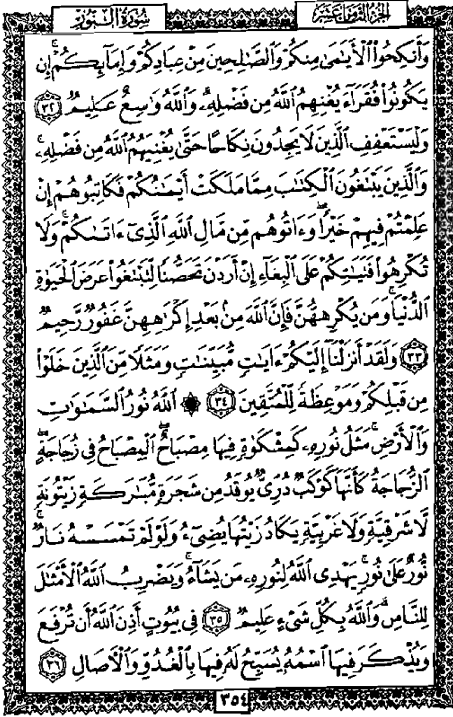 سُورَةُ النُّورِ
الجُزْءُ الثَّامِنَ عَشَرَ
وَأَنكِحُوا۟ ٱلۡأَيَٰمَىٰ مِنكُمۡ وَٱلصَّٰلِحِينَ مِنۡ عِبَادِكُمۡ وَإِمَآئِكُمۡۚ إِن
يَكُونُوا۟ فُقَرَآءَ يُغۡنِهِمُ ٱللَّهُ مِن فَضۡلِهِۦۗ وَٱللَّهُ وَٰسِعٌ عَلِيمٌ ٣٢
وَلۡيَسۡتَعۡفِفِ ٱلَّذِينَ لَا يَجِدُونَ نِكَاحًا حَتَّىٰ يُغۡنِيَهُمُ ٱللَّهُ مِن فَضۡلِهِۦۗ
وَٱلَّذِينَ يَبۡتَغُونَ ٱلۡكِتَٰبَ مِمَّا مَلَكَتۡ أَيۡمَٰنُكُمۡ فَكَاتِبُوهُمۡ إِنۡ
عَلِمۡتُمۡ فِيهِمۡ خَيۡرًاۖ وَءَاتُوهُم مِّن مَّالِ ٱللَّهِ ٱلَّذِىٓ ءَاتَىٰكُمۡۚ وَلَا
تُكۡرِهُوا۟ فَتَيَٰتِكُمۡ عَلَى ٱلۡبِغَآءِ إِنۡ أَرَدۡنَ تَحَصُّنًا لِّتَبۡتَغُوا۟ عَرَضَ ٱلۡحَيَوٰةِ
ٱلدُّنۡيَاۚ وَمَن يُكۡرِههُّنَّ فَإِنَّ ٱللَّهَ مِنۢ بَعۡدِ إِكۡرَٰهِهِنَّ غَفُورٌ رَّحِيمٌ
٣٣ وَلَقَدۡ أَنزَلۡنَآ إِلَيۡكُمۡ ءَايَٰتٍ مُّبَيِّنَٰتٍ وَمَثَلًا مِّنَ ٱلَّذِينَ خَلَوۡا۟
مِن قَبۡلِكُمۡ وَمَوۡعِظَةً لِّلۡمُتَّقِينَ ٣٤ ۞ ٱللَّهُ نُورُ ٱلسَّمَٰوَٰتِ
وَٱلۡأَرۡضِۚ مَثَلُ نُورِهِۦ كَمِشۡكَوٰةٍ فِيهَا مِصۡبَاحٌۖ ٱلۡمِصۡبَاحُ فِى زُجَاجَةٍۖ
ٱلزُّجَاجَةُ كَأَنَّهَا كَوۡكَبٌ دُرِّىٌّ يُوقَدُ مِن شَجَرَةٍ مُّبَٰرَكَةٍ زَيۡتُونَةٍ
لَّا شَرۡقِيَّةٍ وَلَا غَرۡبِيَّةٍ يَكَادُ زَيۡتُهَا يُضِىٓءُ وَلَوۡ لَمۡ تَمۡسَسۡهُ نَارٌۚ
نُّورٌ عَلَىٰ نُورٍۗ يَهۡدِى ٱللَّهُ لِنُورِهِۦ مَن يَشَآءُۚ وَيَضۡرِبُ ٱللَّهُ ٱلۡأَمۡثَٰلَ
لِلنَّاسِۗ وَٱللَّهُ بِكُلِّ شَىۡءٍ عَلِيمٌ ٣٥ فِى بُيُوتٍ أَذِنَ ٱللَّهُ أَن تُرۡفَعَ
وَيُذۡكَرَ فِيهَا ٱسۡمُهُۥ يُسَبِّحُ لَهُۥ فِيهَا بِٱلۡغُدُوِّ وَٱلۡأٓصَالِ ٣٦
٣٥٤